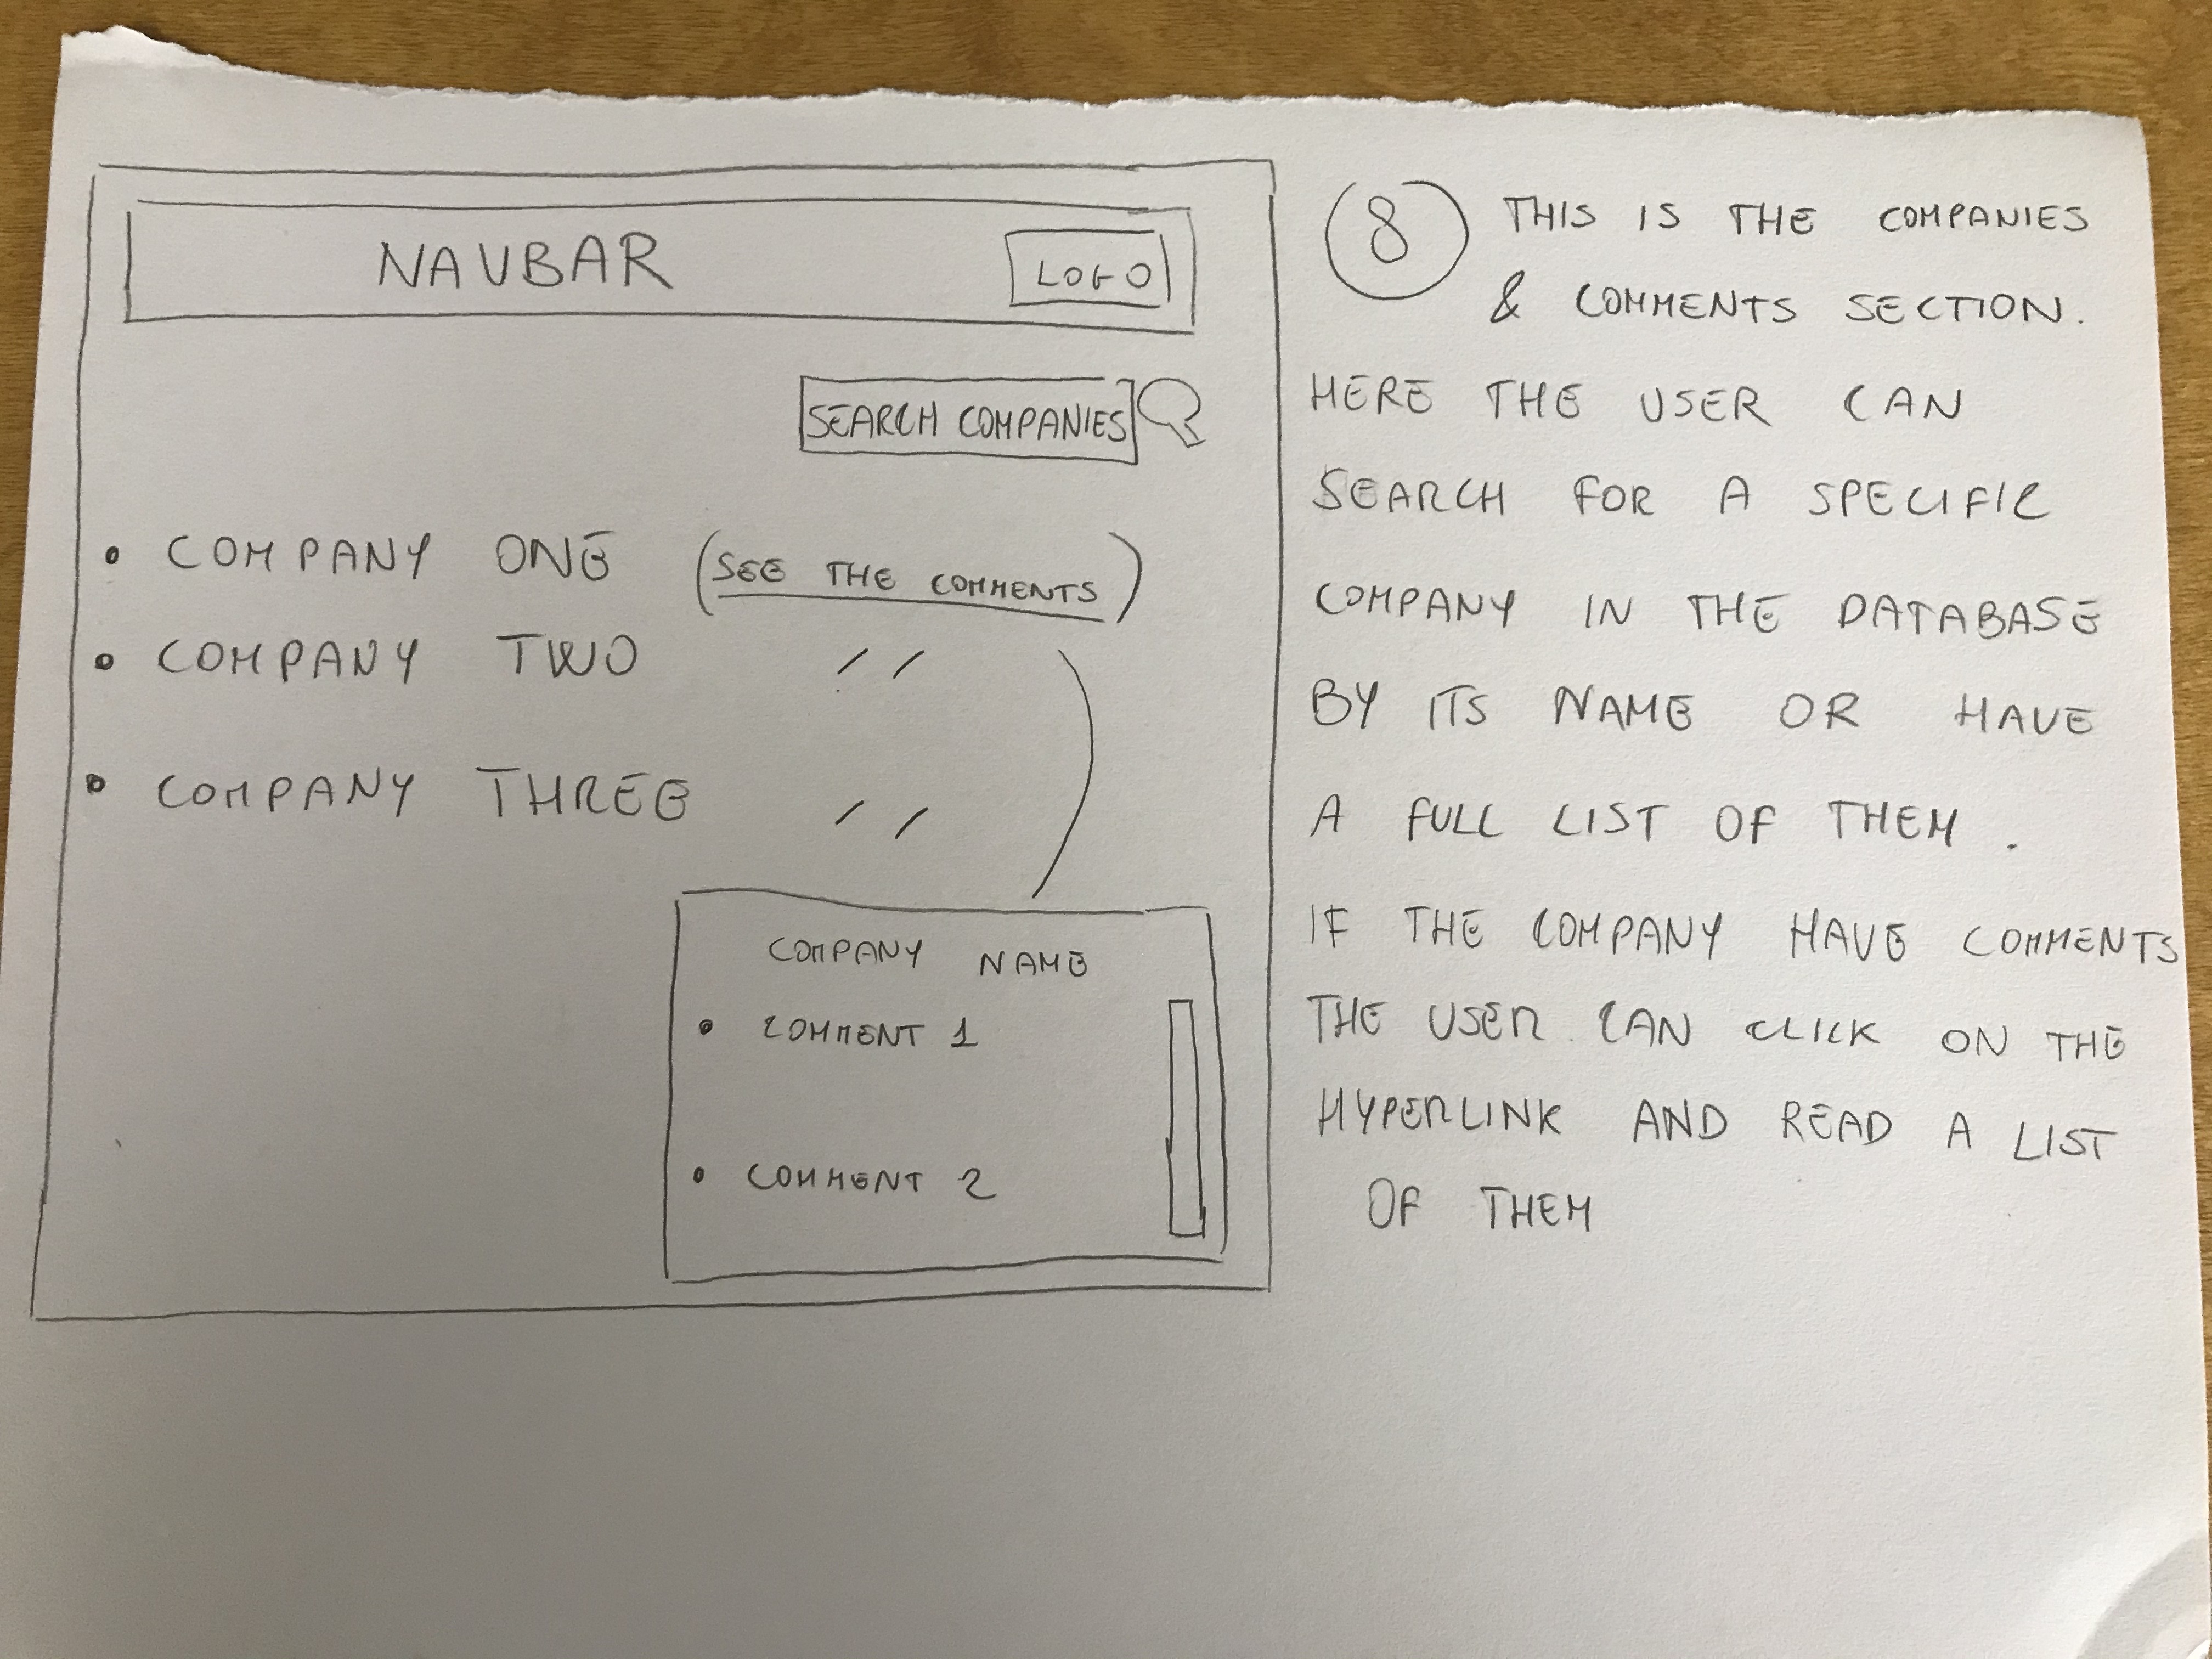 NAVBAR
LOGO
SEARCH COMPANIES
• COMPANY ONE (SEE THE COMMENTS)
• COMPANY TWO ″
• COMPANY THREE ″
COMPANY NAME
• COMMENT 1
• COMMENT 2
8 THIS IS THE COMPANIES
& COMMENTS SECTION.
HERE THE USER CAN
SEARCH FOR A SPECIFIC
COMPANY IN THE DATABASE
BY ITS NAME OR HAVE
A FULL LIST OF THEM.
IF THE COMPANY HAVE COMMENTS
THE USER CAN CLICK ON THE
HYPERLINK AND READ A LIST
OF THEM